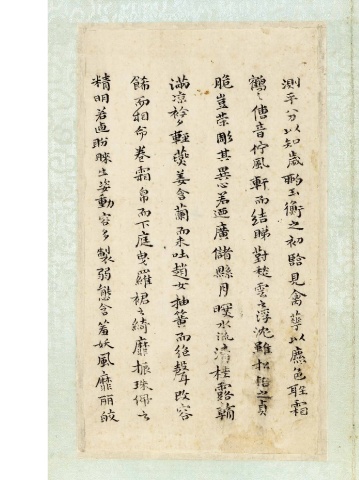 測平分以知歲酌玉衡之初臨見禽華以麃色聽霜
鶴之傳音佇風軒而結睇對愁雲之浮沈雖松梧之貞
脆豈榮彫其異心若廼廣儲縣月暉水流清桂露朝
滿凉衿夕輕燕姜含蘭而未吐趙女抽簧而絕聲改容
飾而相命卷霜帛而下庭曳羅裙之綺靡振珠佩之
精明若廼盼睞生姿動容多製弱態含羞妖風靡麗皎